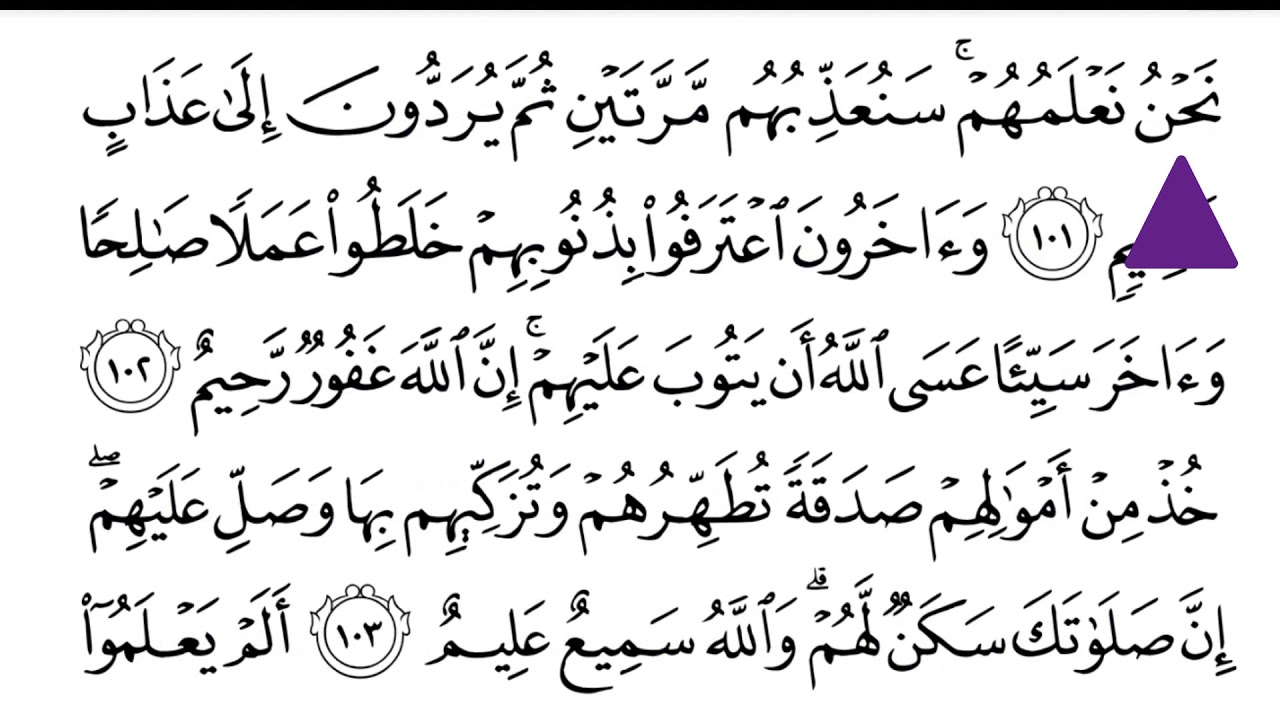 نَحۡنُ نَعۡلَمُهُمۡۚ سَنُعَذِّبُهُم مَّرَّتَيۡنِ ثُمَّ يُرَدُّونَ إِلَىٰ عَذَابٍ
١٠١ وَءَاخَرُونَ ٱعۡتَرَفُواْ بِذُنُوبِهِمۡ خَلَطُواْ عَمَلٗا صَٰلِحٗا
وَءَاخَرَ سَيِّئًا عَسَى ٱللَّهُ أَن يَتُوبَ عَلَيۡهِمۡۚ إِنَّ ٱللَّهَ غَفُورٞ رَّحِيمٌ ١٠٢
خُذۡ مِنۡ أَمۡوَٰلِهِمۡ صَدَقَةٗ تُطَهِّرُهُمۡ وَتُزَكِّيهِم بِهَا وَصَلِّ عَلَيۡهِمۡۖ
إِنَّ صَلَوٰتَكَ سَكَنٞ لَّهُمۡۗ وَٱللَّهُ سَمِيعٌ عَلِيمٌ ١٠٣ أَلَمۡ يَعۡلَمُوٓاْ